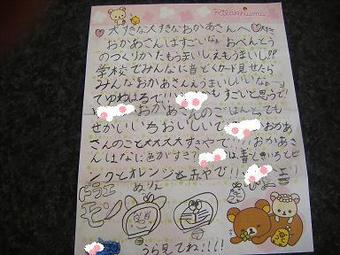 Rilakkuma
大すきな大すきなおかあさんへ
おかあさんはすごいなぁ おべんとう
のつくりかたもうまいしえもうまいし!!
学校でみんなに音どくカード見せたら
みんなおかあさんえうまいしいいなぁ
てゆわはるで!!
もすごいと思うで!
おかあさんのごはんとても
せかいいちおいしいて
おかあ
さんのこと大大大大すきやで!!!
おかあさ
んはなに色がすき?
は青と
ピ
ンクとオレンジと赤やで!!
ドラエ
モン
めりん
うら見てね!!!!